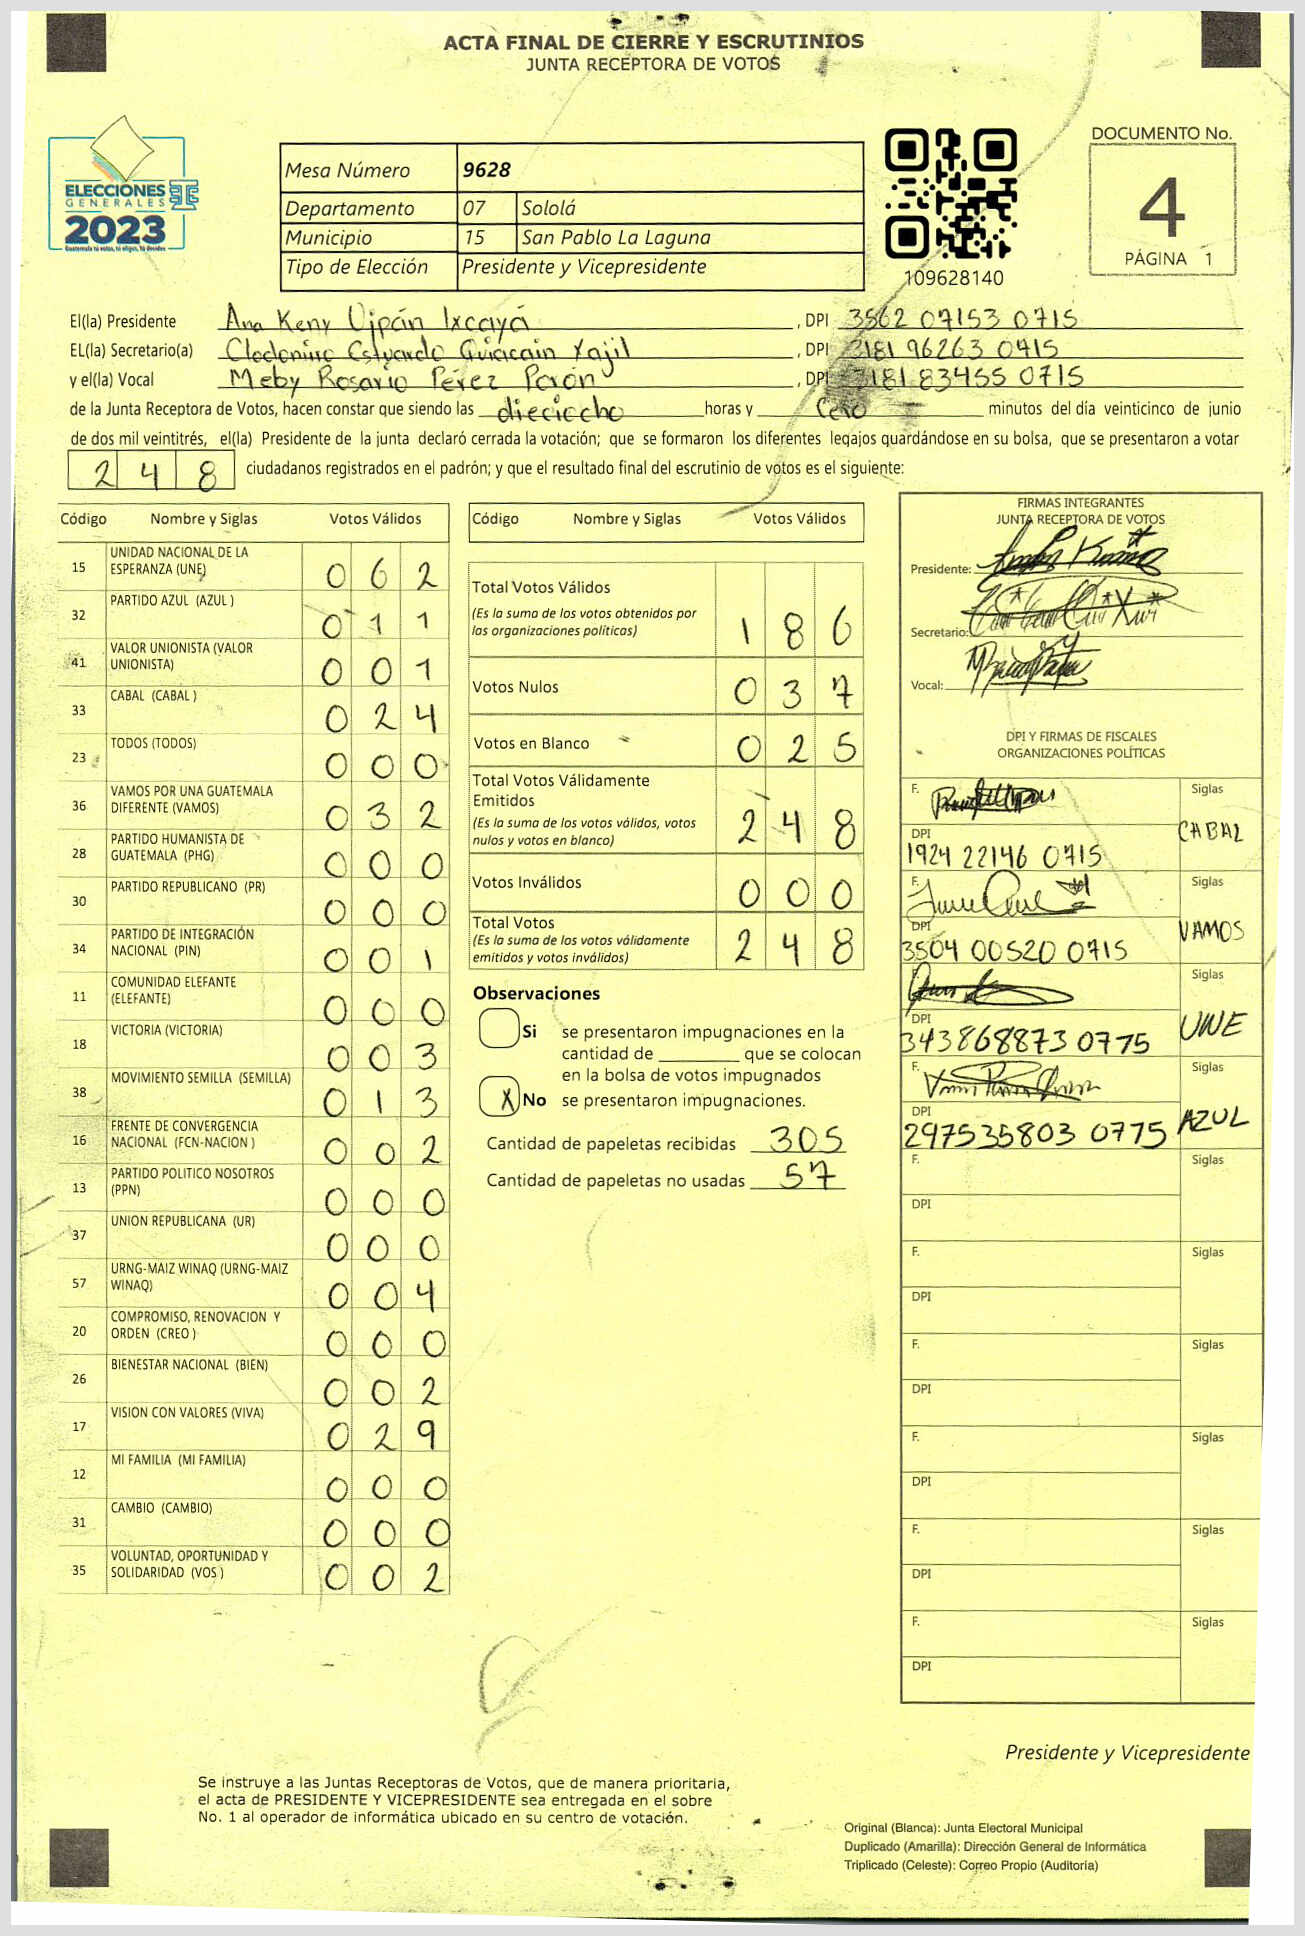 ACTA FINAL DE CIERRE Y ESCRUTINIOS
JUNTA RECEPTORA DE VOTOS
ELECCIONES
GENERALES
2023
Guatemala tú votas, tú eliges, tú decides
Mesa Número 9628
Departamento 07 Sololá
Municipio 15 San Pablo La Laguna
Tipo de Elección Presidente y Vicepresidente
109628140
DOCUMENTO No.
4
PÁGINA 1
El(la) Presidente Ana Keny Ujpán Ixcayá, DPI 3562 07153 0715
EL(la) Secretario(a) Estuardo Quiacain Xajil, DPI 3181 96263 0715
y el(la) Vocal Meby Rosario Pérez, DPI 3181 83455 0715
de la Junta Receptora de Votos, hacen constar que siendo las dieciocho horas y Cero minutos del día veinticinco de junio
de dos mil veintitrés, el(la) Presidente de la junta declaró cerrada la votación; que se formaron los diferentes legajos guardándose en su bolsa, que se presentaron a votar
248 ciudadanos registrados en el padrón; y que el resultado final del escrutinio de votos es el siguiente:
Código Nombre y Siglas Votos Válidos
15 UNIDAD NACIONAL DE LA ESPERANZA (UNE) 062
32 PARTIDO AZUL (AZUL ) 011
41 VALOR UNIONISTA (VALOR UNIONISTA) 001
33 CABAL (CABAL ) 024
23 TODOS (TODOS) 000
36 VAMOS POR UNA GUATEMALA DIFERENTE (VAMOS) 032
28 PARTIDO HUMANISTA DE GUATEMALA (PHG) 000
30 PARTIDO REPUBLICANO (PR) 000
34 PARTIDO DE INTEGRACIÓN NACIONAL (PIN) 001
11 COMUNIDAD ELEFANTE (ELEFANTE) 000
18 VICTORIA (VICTORIA) 003
38 MOVIMIENTO SEMILLA (SEMILLA) 013
16 FRENTE DE CONVERGENCIA NACIONAL (FCN-NACION ) 002
13 PARTIDO POLITICO NOSOTROS (PPN) 000
37 UNION REPUBLICANA (UR) 000
57 URNG-MAIZ WINAQ (URNG-MAIZ WINAQ) 004
20 COMPROMISO, RENOVACION Y ORDEN (CREO ) 000
26 BIENESTAR NACIONAL (BIEN) 002
17 VISION CON VALORES (VIVA) 029
12 MI FAMILIA (MI FAMILIA) 000
31 CAMBIO (CAMBIO) 000
35 VOLUNTAD, OPORTUNIDAD Y SOLIDARIDAD (VOS ) 002
Código Nombre y Siglas Votos Válidos
Total Votos Válidos
(Es la suma de los votos obtenidos por
las organizaciones políticas) 186
Votos Nulos 037
Votos en Blanco 025
Total Votos Válidamente
Emitidos
(Es la suma de los votos válidos, votos
nulos y votos en blanco) 248
Votos Inválidos 000
Total Votos
(Es la suma de los votos válidamente
emitidos y votos inválidos) 248
Observaciones
Si se presentaron impugnaciones en la
cantidad de ________ que se colocan
en la bolsa de votos impugnados
X No se presentaron impugnaciones.
Cantidad de papeletas recibidas 305
Cantidad de papeletas no usadas 57
FIRMAS INTEGRANTES
JUNTA RECEPTORA DE VOTOS
Presidente:
Secretario:
Vocal:
DPI Y FIRMAS DE FISCALES
ORGANIZACIONES POLÍTICAS
F. Siglas
CABAL
DPI
1924 22146 0715
F. Siglas
VAMOS
DPI
3504 00520 0715
F. Siglas
UNE
DPI
343868873 0775
F. Siglas
AZUL
DPI
297535803 0775
F. Siglas
DPI
F. Siglas
DPI
F. Siglas
DPI
F. Siglas
DPI
F. Siglas
DPI
F. Siglas
DPI
Presidente y Vicepresidente
Se instruye a las Juntas Receptoras de Votos, que de manera prioritaria,
el acta de PRESIDENTE Y VICEPRESIDENTE sea entregada en el sobre
No. 1 al operador de informática ubicado en su centro de votación.
Original (Blanca): Junta Electoral Municipal
Duplicado (Amarilla): Dirección General de Informática
Triplicado (Celeste): Correo Propio (Auditoría)